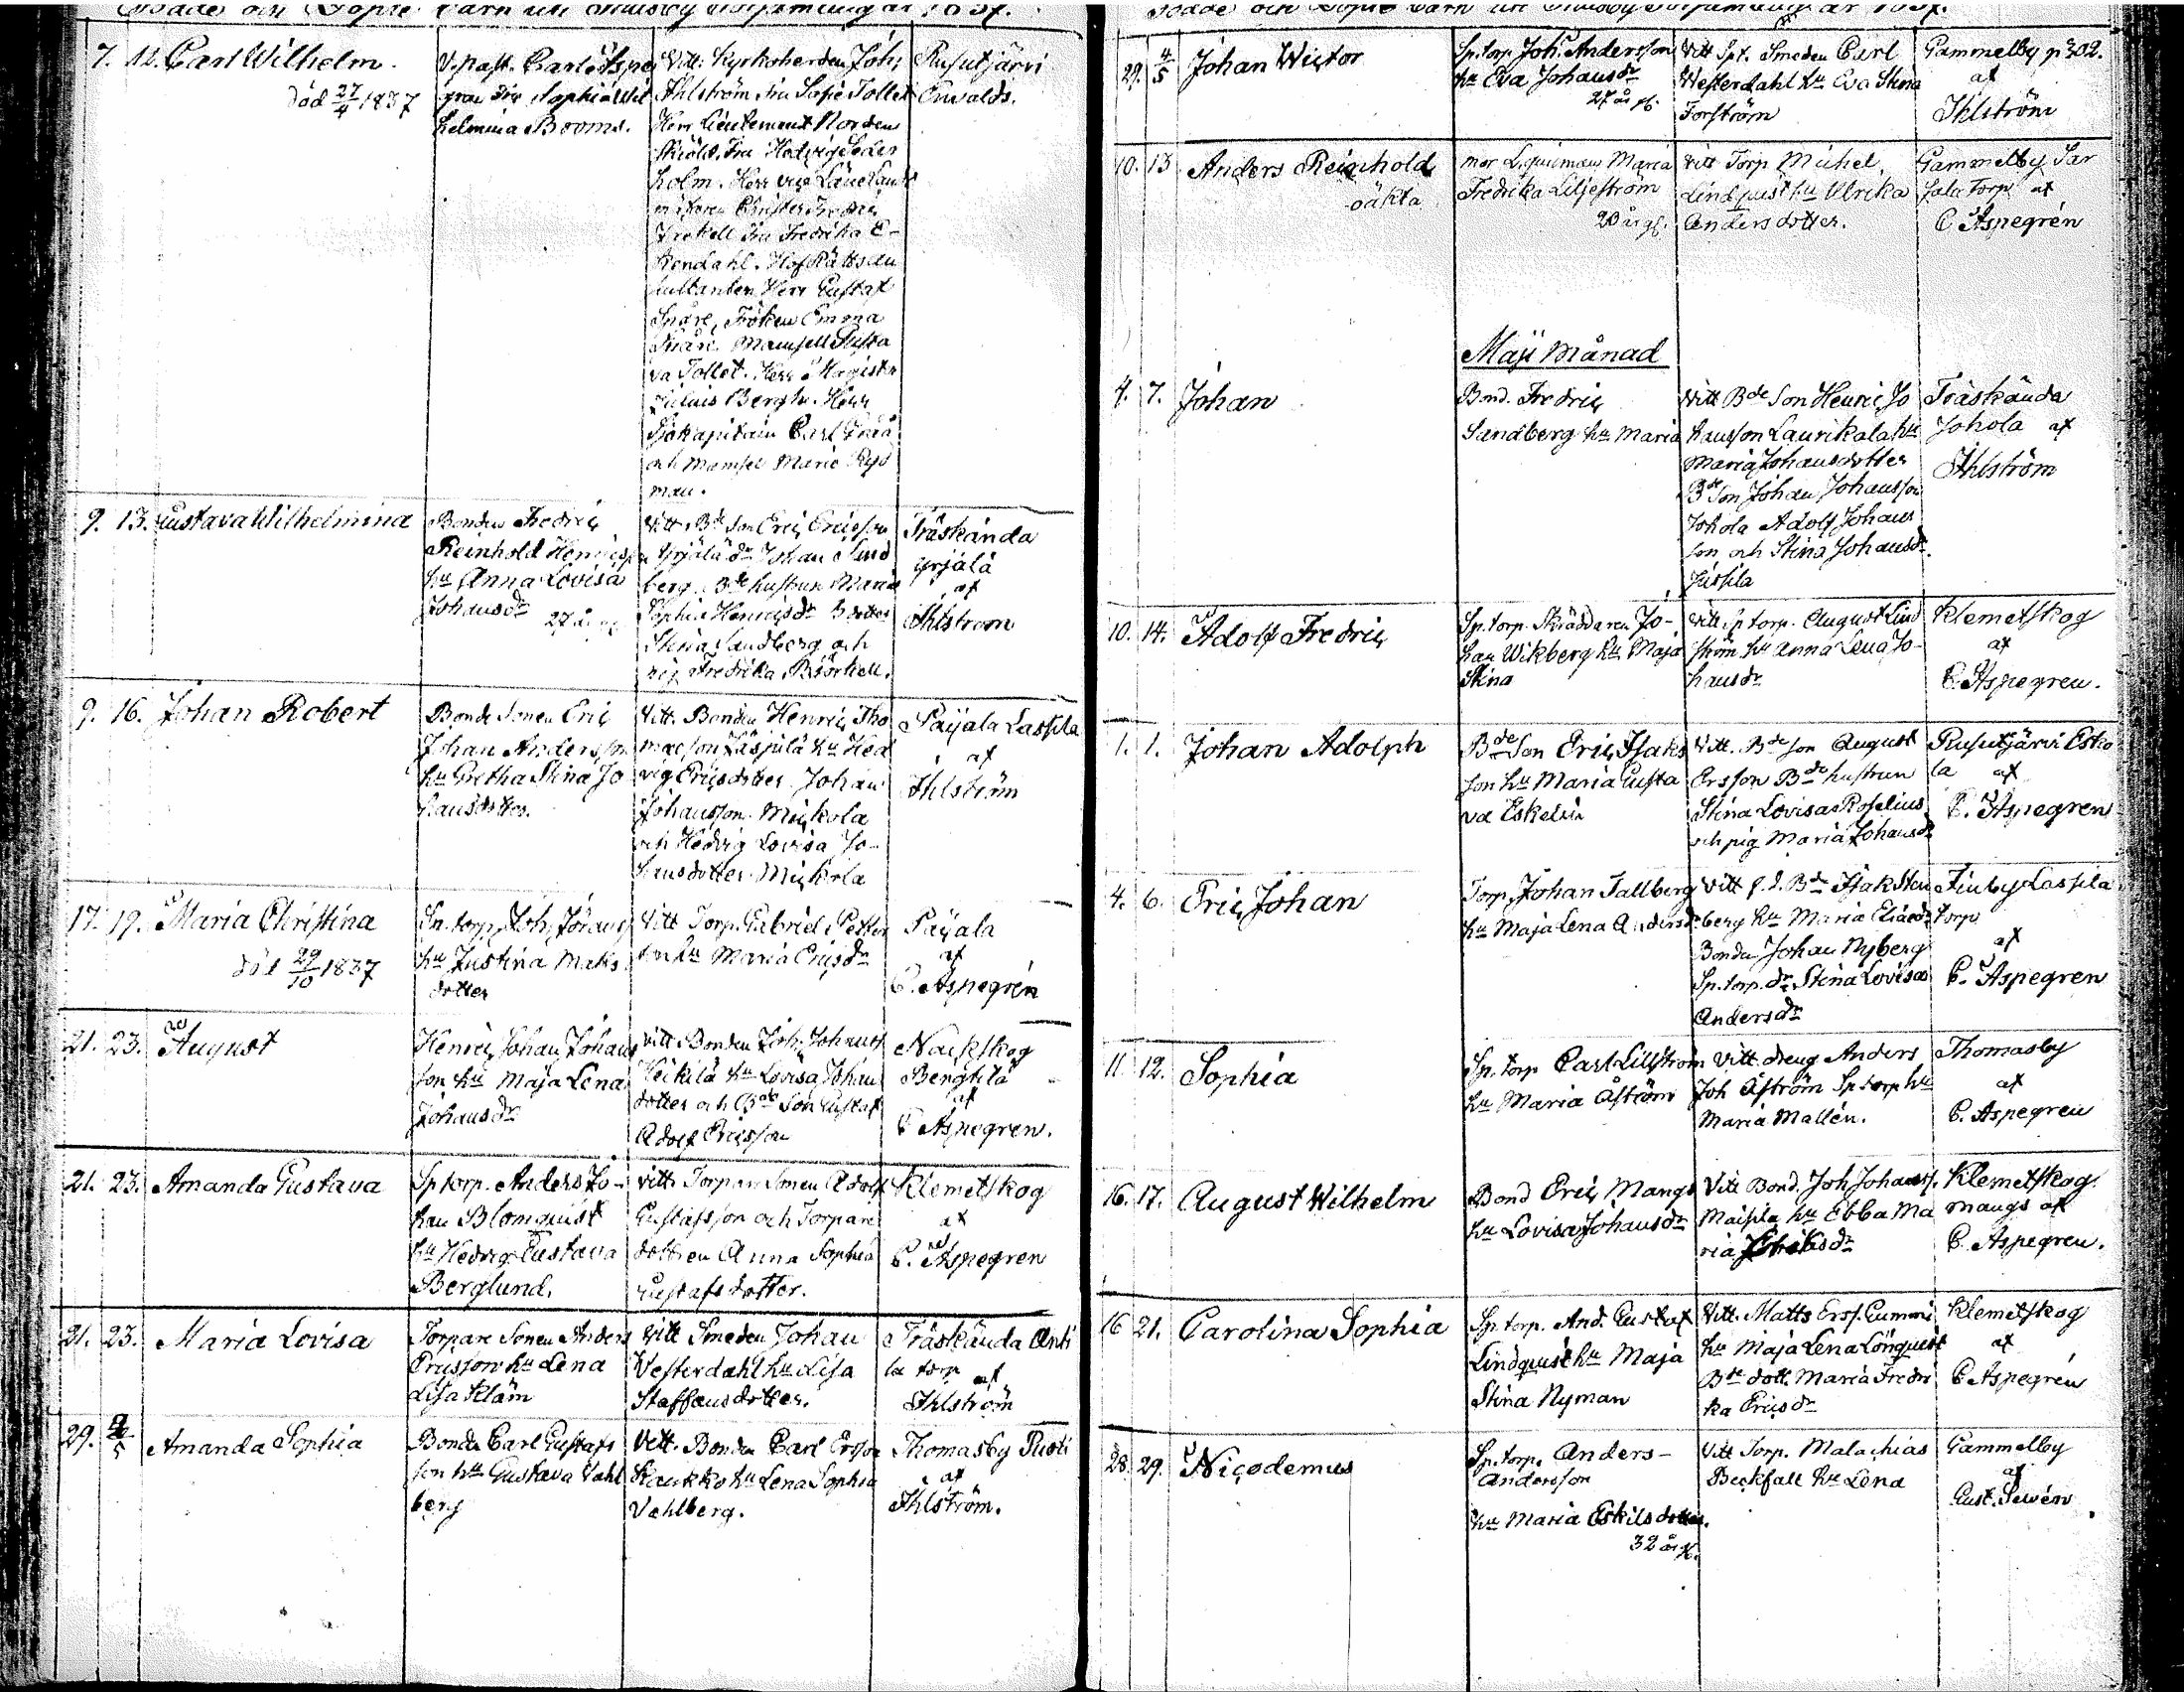 7. 12. Carl Wilhelm.
död 27/4 1837
V. past. Carl Aspe
gren Fru Sophia Wil
helmina Boom.
Vitt. Kyrkoherden Joh.
Ahlström Fru Sofie Tollet
Herr Lieutenant Norden
skiöld, Fru Hedvig Ceder
holm. Herr vice
Fru Fredrika E-
kendahl. HofRätts
Herr Gustaf
Spåre, Fröken Emma
Spåre. Mamsell Gusta
va Tollet. Herr Magister
Julius Bergh. Herr
Sjökapitain Carl
och Mamsel Marie Nyd
man.
Rusutjärvi
Onvalds.
9. 13. Gustava Wilhelmina
Bonden Fredric
Reinhold Henricsson
hu Anna Lovisa
Johansdr
27 år
Vitt. Bde Son Eric Ericsson
Yrjälä dr. Johan Sund
berg. Bde hustrun Maria
Sophia Henricsdr
Stina Sandberg och
pig Fredrika Björkell.
Träskända
Yrjälä
af
Ahlström
9. 16. Johan Robert
Bonde Sonen Eric
Johan Andersson
hu Gretha Stina Jo
hansdotter.
Vitt. Bonden Henric Tho
masson Laspilä hu Hed
vig Ericsdotter Johan
Johansson Mickola
och Hedvig Lovisa Jo-
hansdotter Mickola
Paijala Lassila
af
Ahlström
17. 19. Maria Christina
död 29/10 1837
Sp. torp. Joh. Johans
hu Justina Mats
dotter
Vitt Torp. Gabriel Petter
son hu Maria Ericsdr
Paijala
af
C. Aspegrén
21. 23. August
Henric Johan Johans
son hu Maja Lena
Johansdr
Vitt. Bonden Joh. Johanss
Heikilä hu Lovisa Johans
dotter och Bde Son Gustaf
Adolf Ericsson
Nackskog
Bengtilä
af
C Aspegren.
21. 23. Amanda Gustava
Sp torp. Anders Jo-
han Blomquist
hu Hedvig Gustava
Berglund.
Vitt. Torpare Sonen Adolf
Gustafsson och Torpare
dottren Anna Sophia
Gustafsdotter.
Klemetskog
af
C. Aspegren
21. 23. Maria Lovisa
Torpare Sonen Anders
Ericsson hu Lena
Lisa Kläm
Vitt Smeden Johan
Westerdahl hu Lisa
Staffansdotter.
Träskända Anti
la torp af
Ahlström
29. 4/5 Amanda Sophia
Bonden Carl Gustafs
son hu Gustava Vahl
berg
Vitt. Bonden Carl Ersson
Kaukko hu Lena Sophia
Vahlberg.
Thomasby Rusti
af
Ahlström.
29. 4/5 Johan Wictor
Sp. torp. Joh. Andersson
hu Eva Johansdr
27 år gl.
Vitt Spt. Smeden Carl
Westerdahl hu Eva Stina
Forström
Gammelby p 302.
af
Ahlström
10. 13 Anders Reinhold
oäkta
mor Maria
Fredrika Liljeström
20 år gl.
Vitt Torp Michel
Lindqvist hu Ulrika
Andersdotter.
Gammelby Sar
jala torp af
C Aspegrén
Maji Månad
4. 7. Johan
Bond. Fredric
Sandberg hu Maria
Vitt Bde Son Henric Jo
hansson Laurikala hu
Maria Johansdotter
Bde Son Johan Johansson
Johola Adolf Johans
son och Stina Johansdr
Jussila
Träskända
Johola af
Ahlström
10. 14. Adolf Fredric
Sp. torp. Skräddaren Jo-
han Wikberg hu Maja
Stina
Vitt Sp torp. August Lind
ström hu Anna Lena Jo-
hansdr
Klemetskog
af
C. Aspegren.
1. 1. Johan Adolph
Bde Son Eric Isaks
son hu Maria Gusta
va Eskelin
Vitt. Bde Son August
Ersson Bde hustrun
Stina Lovisa Roselius
och pig Maria Johansdr
Rusutjärvi Esko
la af
C. Aspegren
4. 6. Eric Johan
Torp. Johan Tallberg
hu Maja Lena Andersdr
Vitt f. d. Bde Isak Sten
berg hu Maria Eliaedr
Bonden Johan Nyberg
Sp. torp. dr. Stina Lovisa
Andersdr
Finby Lassila
torp
af
C. Aspegren
11. 12. Sophia
Sp. torp Carl Lillström
hu Maria Åström
Vitt. dreng Anders
Joh Åström Sp torp hu
Maria Mallén.
Thomasby
af
C. Aspegren
16. 17. August Wilhelm
Bond Eric Mangs
hu Lovisa Johansdr
Vitt Bond. Joh Johanss.
Maisila hu Ebba Ma
ria
Klemetskog
mangs af
C. Aspegren.
16 21. Carolina Sophia
Sp. torp. And. Gustaf
Lindquist hu Maja
Stina Nyman
Vitt. Matts Erss. Gummi
hu Maja Lena Lönquist
Bde dott. Maria Fredri
ka Ericsdr
Klemetskog
af
C Aspegrén
28. 29. Nicodemus
Sp. torp. Anders-
Andersson
hu Maria Eskilsdotter.
32 år gl.
Vitt Torp. Malachias
Beckfall hu Lena
Gammelby
af
Gust. Sevén